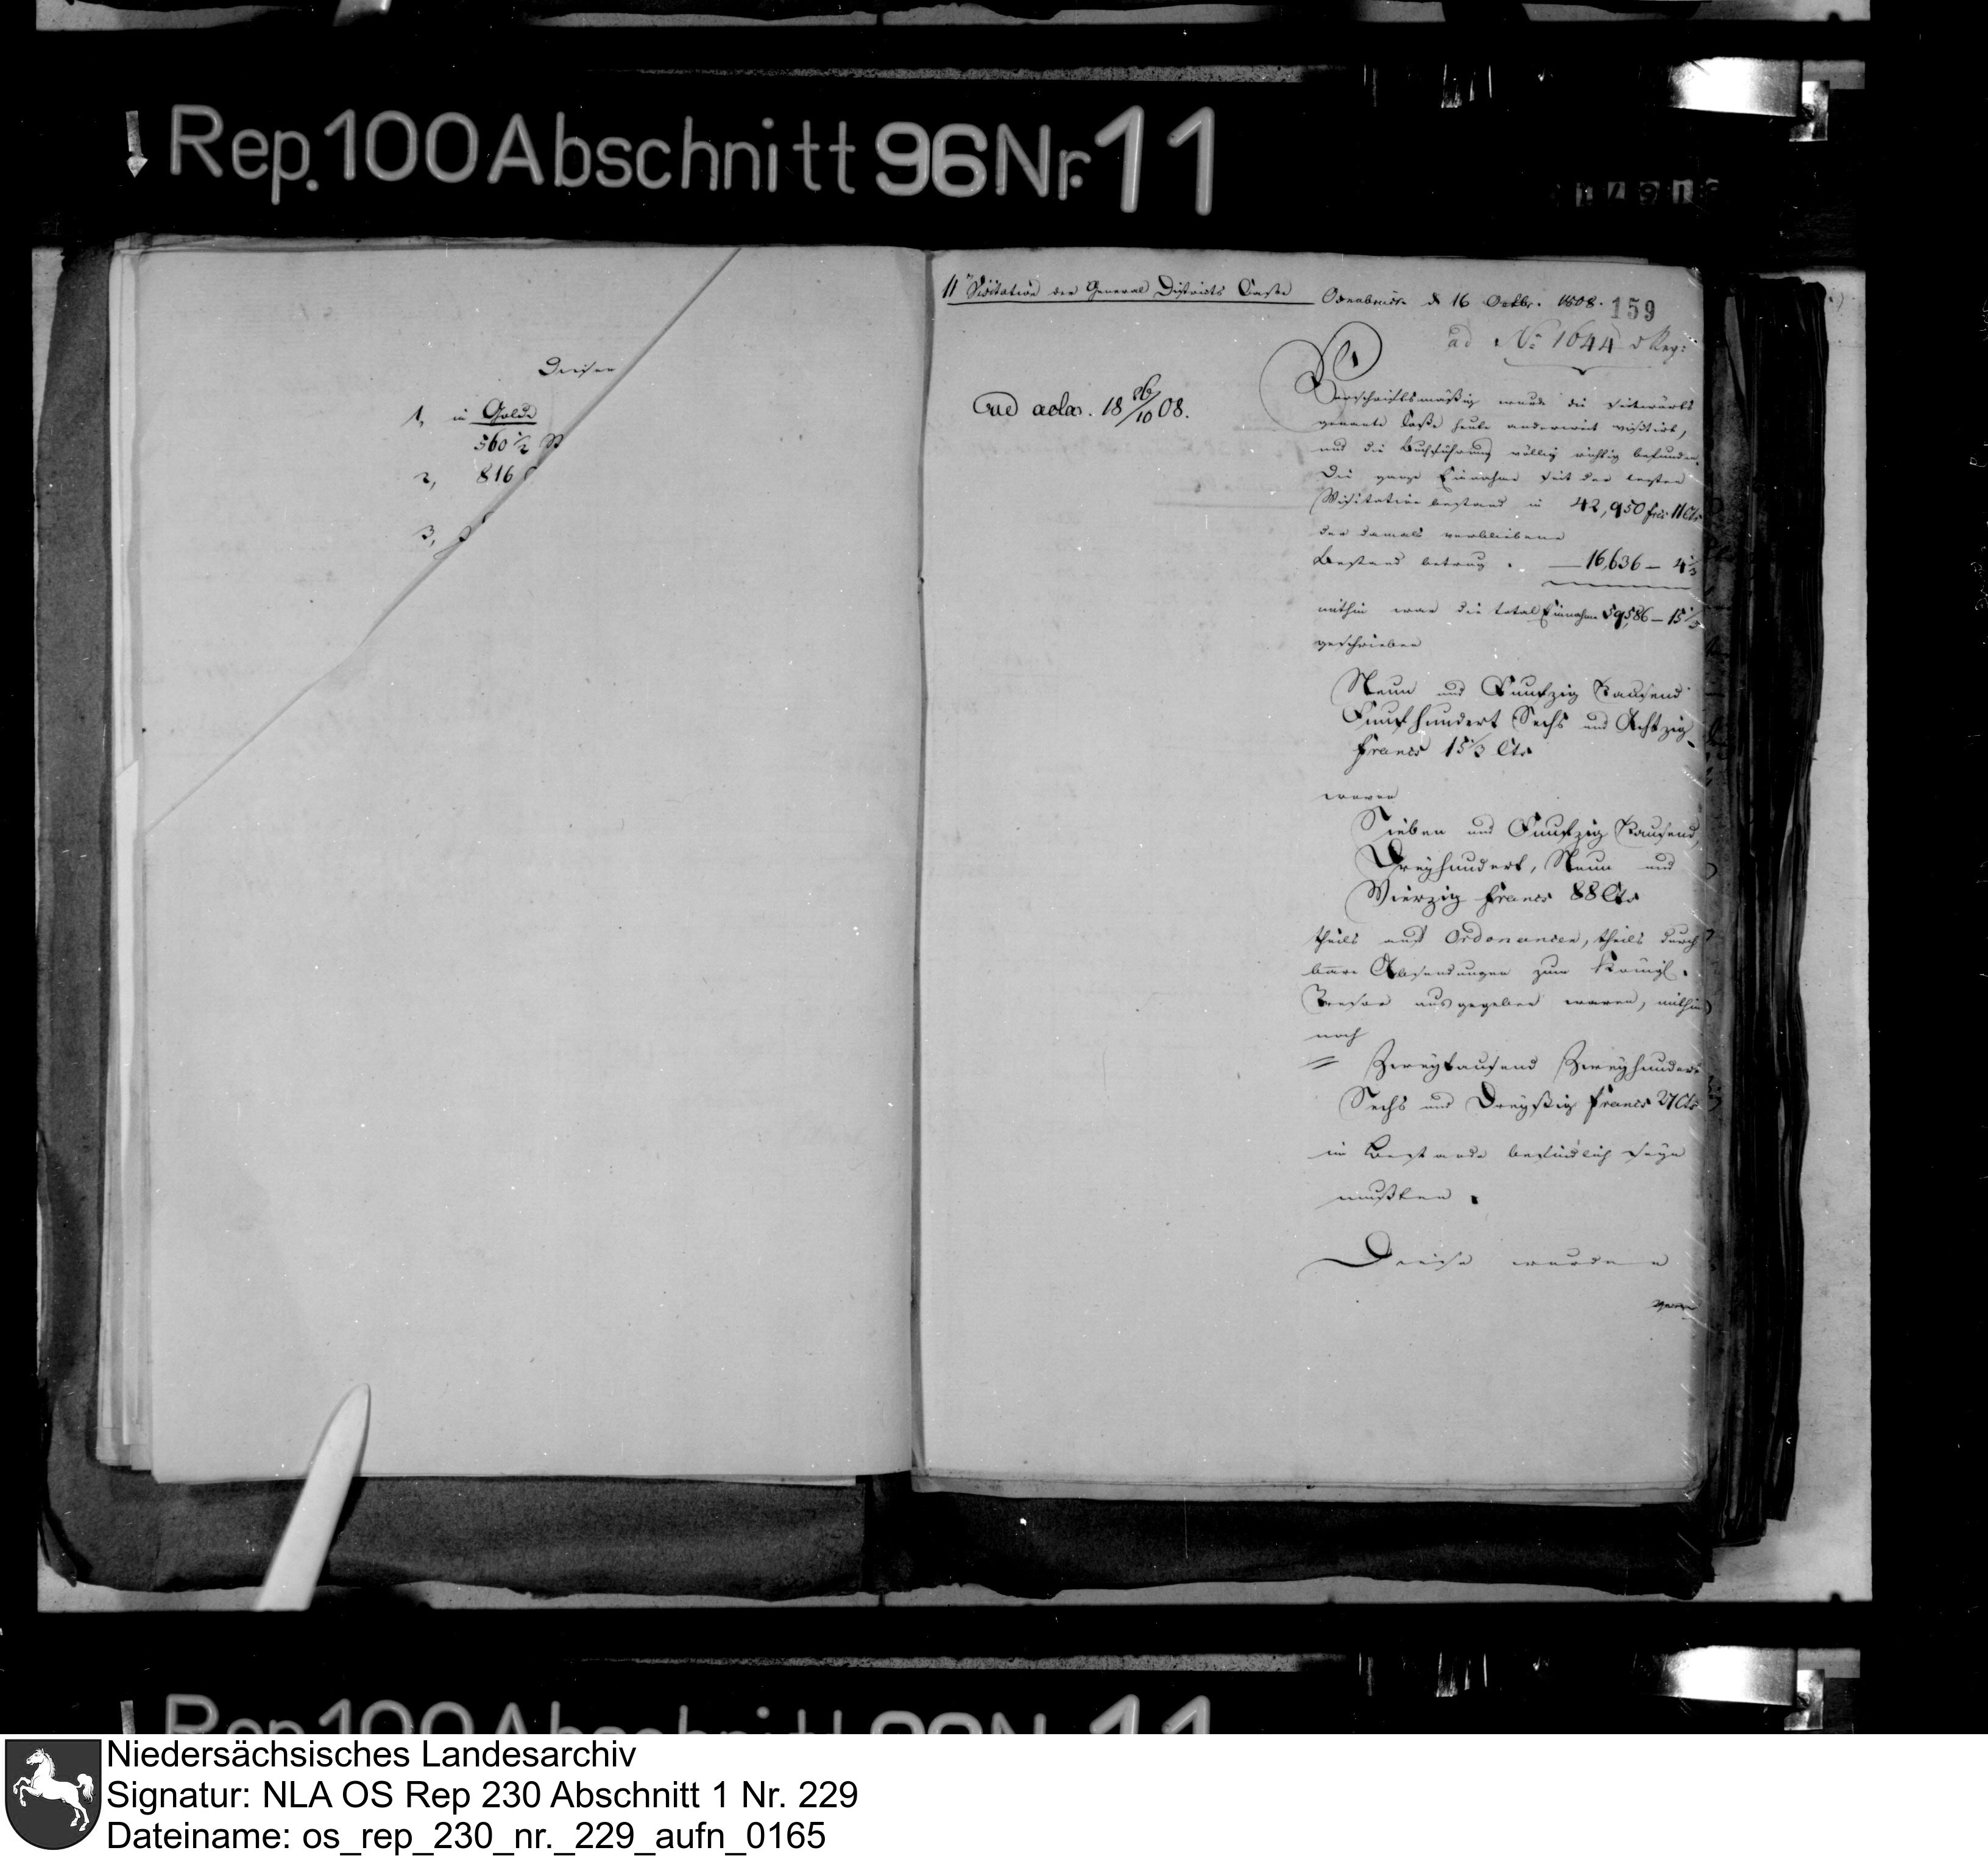 Rep. 100 Abschnitt 96 Nr. 11
Dieser
1, in Golde
560 1/2
2, 816
3,
11te Visitation der General Districts Casse
Osnabrück d 16 Octbr. 1808.
159
ad No 1644 d Reg:
ad acta. 18 26/10 08.
Vorschriftsmäßig wurde die seitwärts
genante Casse heute anderweit visitirt,
und die Buchführung völlig richtig befunden.
Die ganze Einnahme seit der letzten
Visitation bestand in 42,950 frcs 11 Cts
der damals verbliebene
Bestand betrug . — 16,636 — 4 1/3
mithin war die total Einnahme 59,586 — 15 1/3
geschrieben
Neun und Funfzig Tausend
Funfhundert Sechs und Achtzig
francs 15 1/3 Cts
wovon
Sieben und Funfzig Tausend,
Dreyhundert, Neun und
Vierzig francs 88 Cts
theils auf Ordonancen, theils durch
baare Absendungen zum Königl.
Tresor ausgegeben waren, mithin
noch
= Zweytausend Zweyhundert
Sechs und Dreyßig francs 27 Cts
im Bestande befindlich seyn
mußten.
Diese wurden
Rep. 100 Abschnitt 96 Nr. 11
Niedersächsisches Landesarchiv
Signatur: NLA OS Rep 230 Abschnitt 1 Nr. 229
Dateiname: os_rep_230_nr._229_aufn_0165